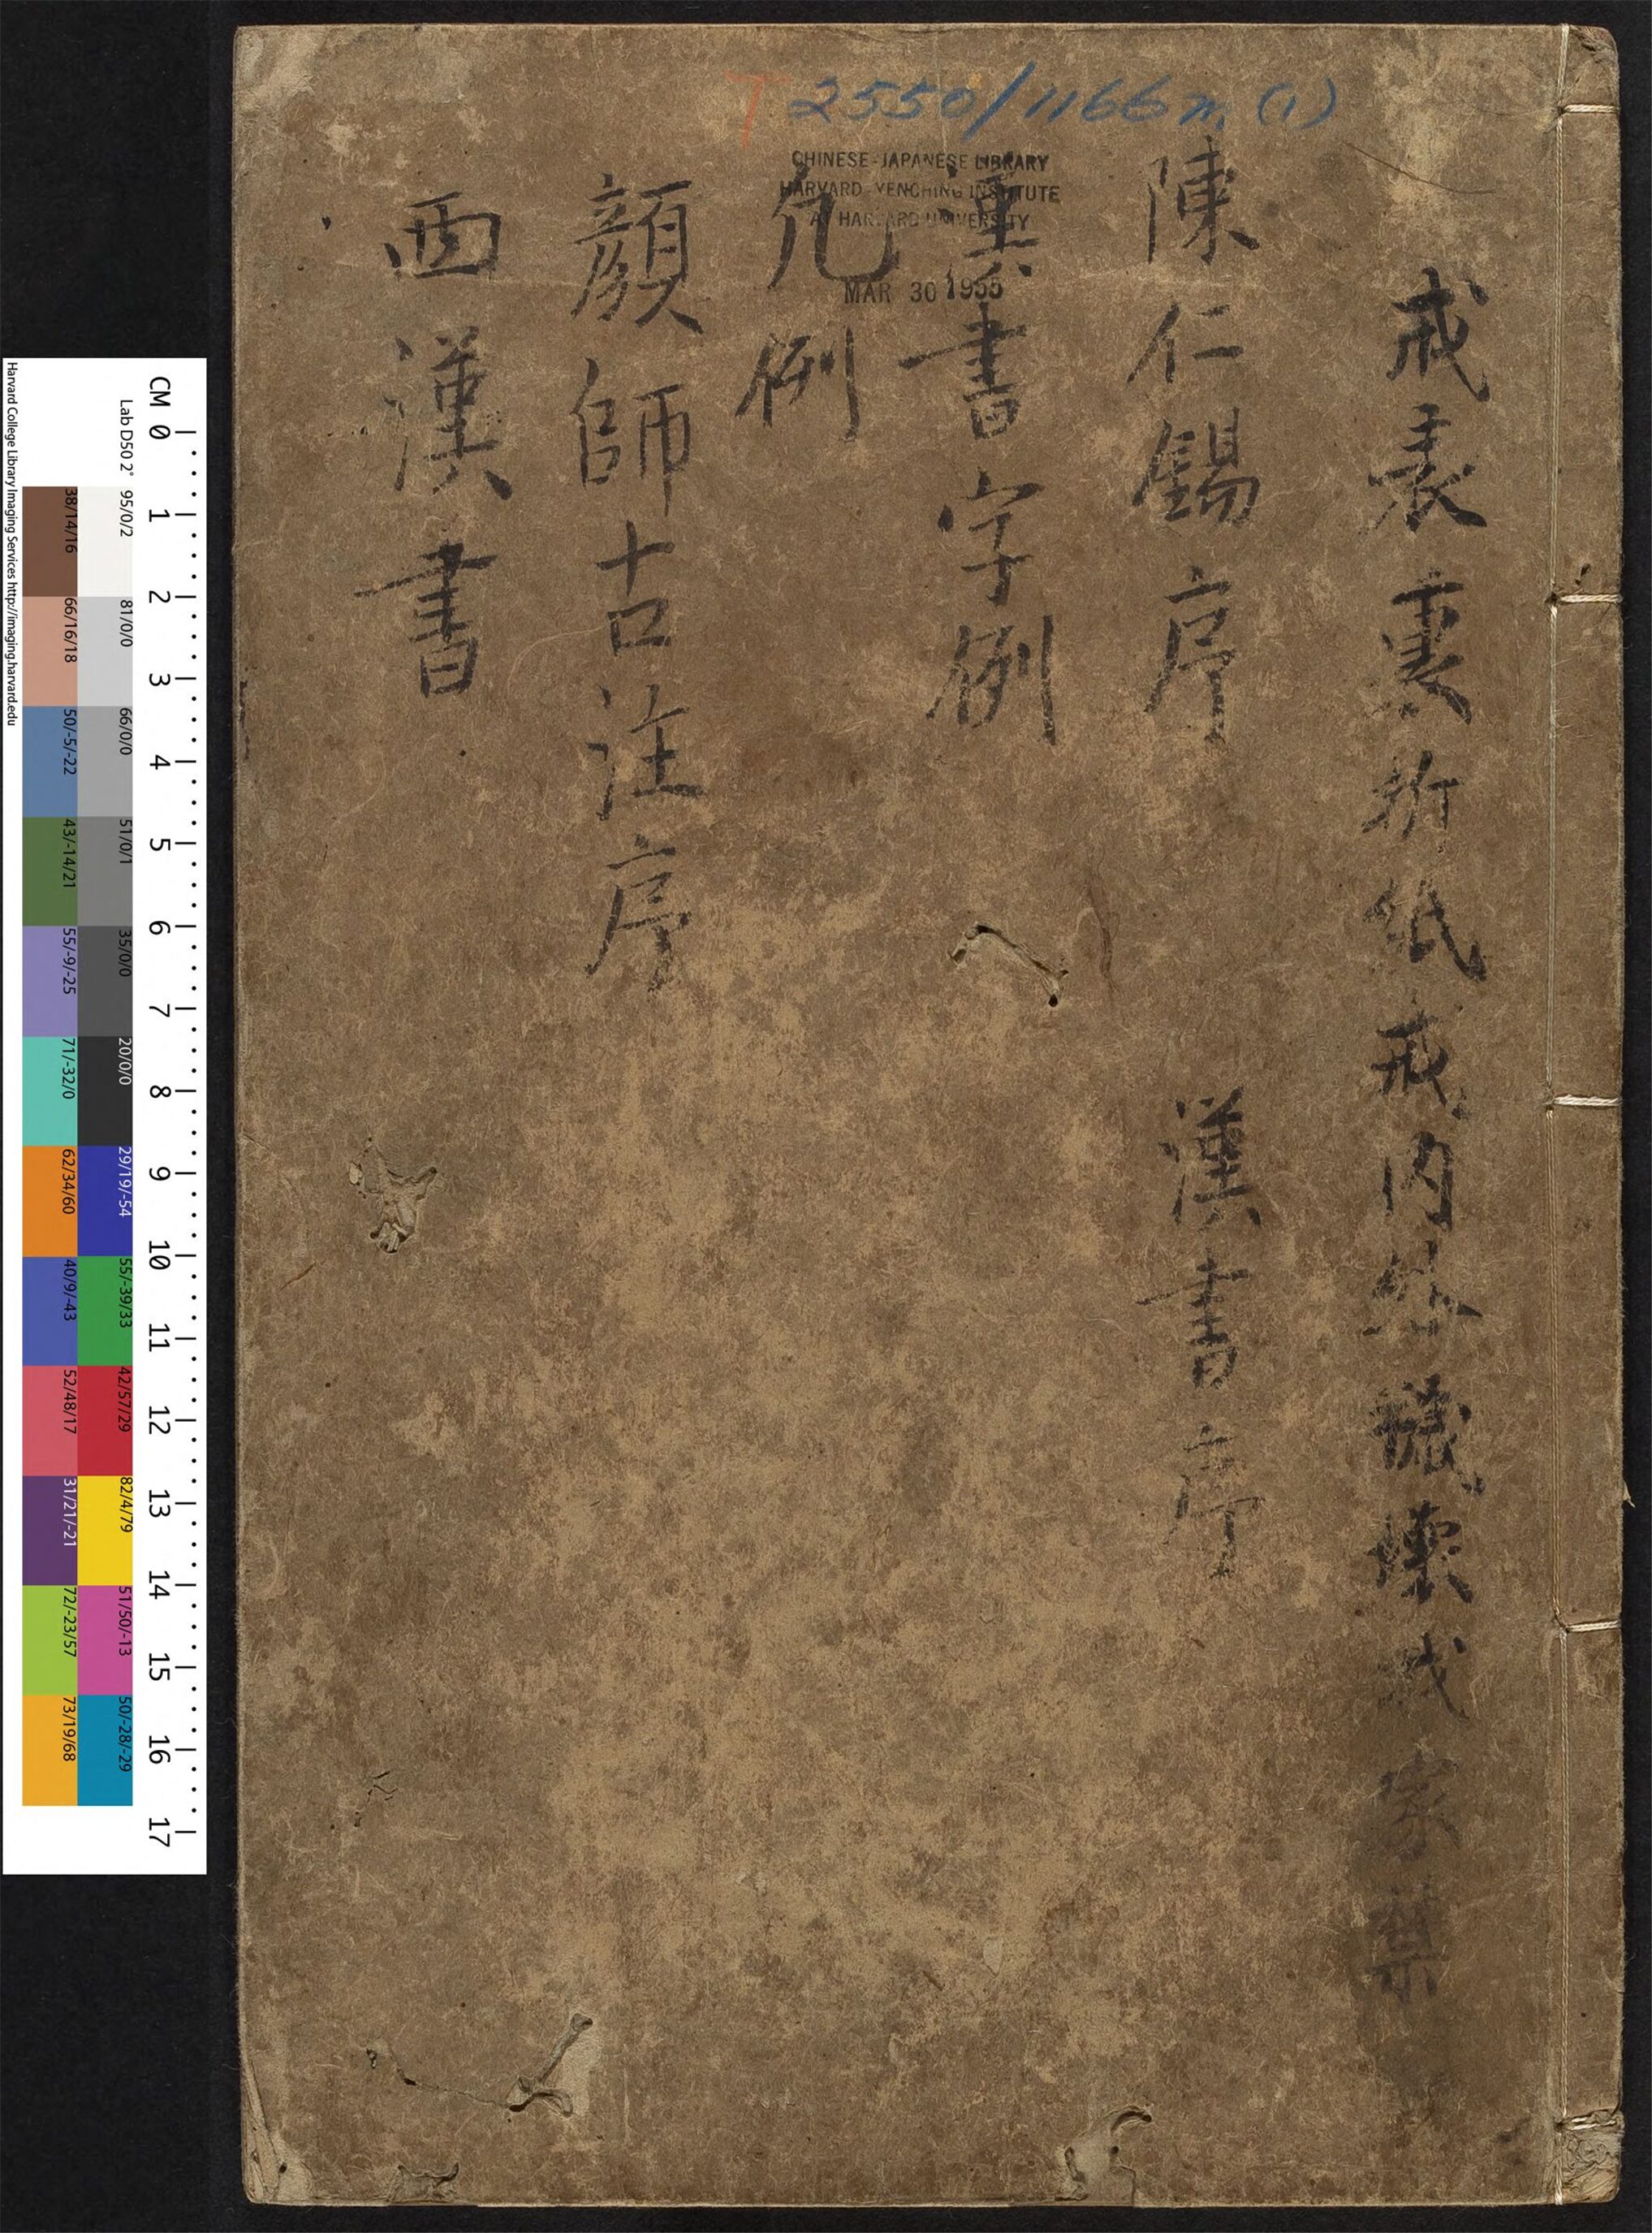 T 2550/1166n (1)
CHINESE-JAPANESE LIBRARY
HARVARD-YENCHING INSTITUTE
AT HARVARD UNIVERSITY
MAR 30 1955
戒表裏折紙戒内外壞戒禁
陳仁錫序 漢書序
漢書字例
凡例
顏師古注序
西漢書
CM 0 1 2 3 4 5 6 7 8 9 10 11 12 13 14 15 16 17
Lab D50 2° 95/0/2 81/0/0 66/0/0 51/0/1 35/0/0 20/0/0 29/19/-54 55/-39/33 42/57/29 82/4/79 51/50/-13 50/-28/-29
38/14/16 66/16/18 50/-5/-22 43/-14/21 55/-9/-25 71/-32/0 62/34/60 40/9/-43 52/48/17 31/21/-21 72/-23/57 73/19/68
Harvard College Library Imaging Services http://imaging.harvard.edu